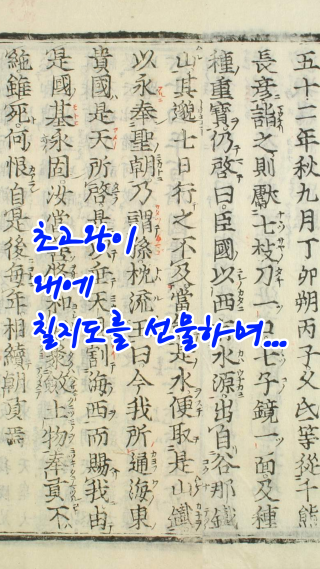 五十二年秋九月丁卯朔丙子久氐等從千熊
長彥詣之則獻七枝刀一口七子鏡一面及種
種重寶仍啓曰臣國以西水源出自谷那鐵
山其邈七日行之不及當是水便取是山鐵
以永奉聖朝乃謂孫枕流王曰今我所通海東
貴國是天所啓是以天割海西而賜我由
是國基永固汝當土物奉貢不
絶雖死何恨自是後每年相續朝貢焉
초고왕이
왜에
칠지도를 선물하며...